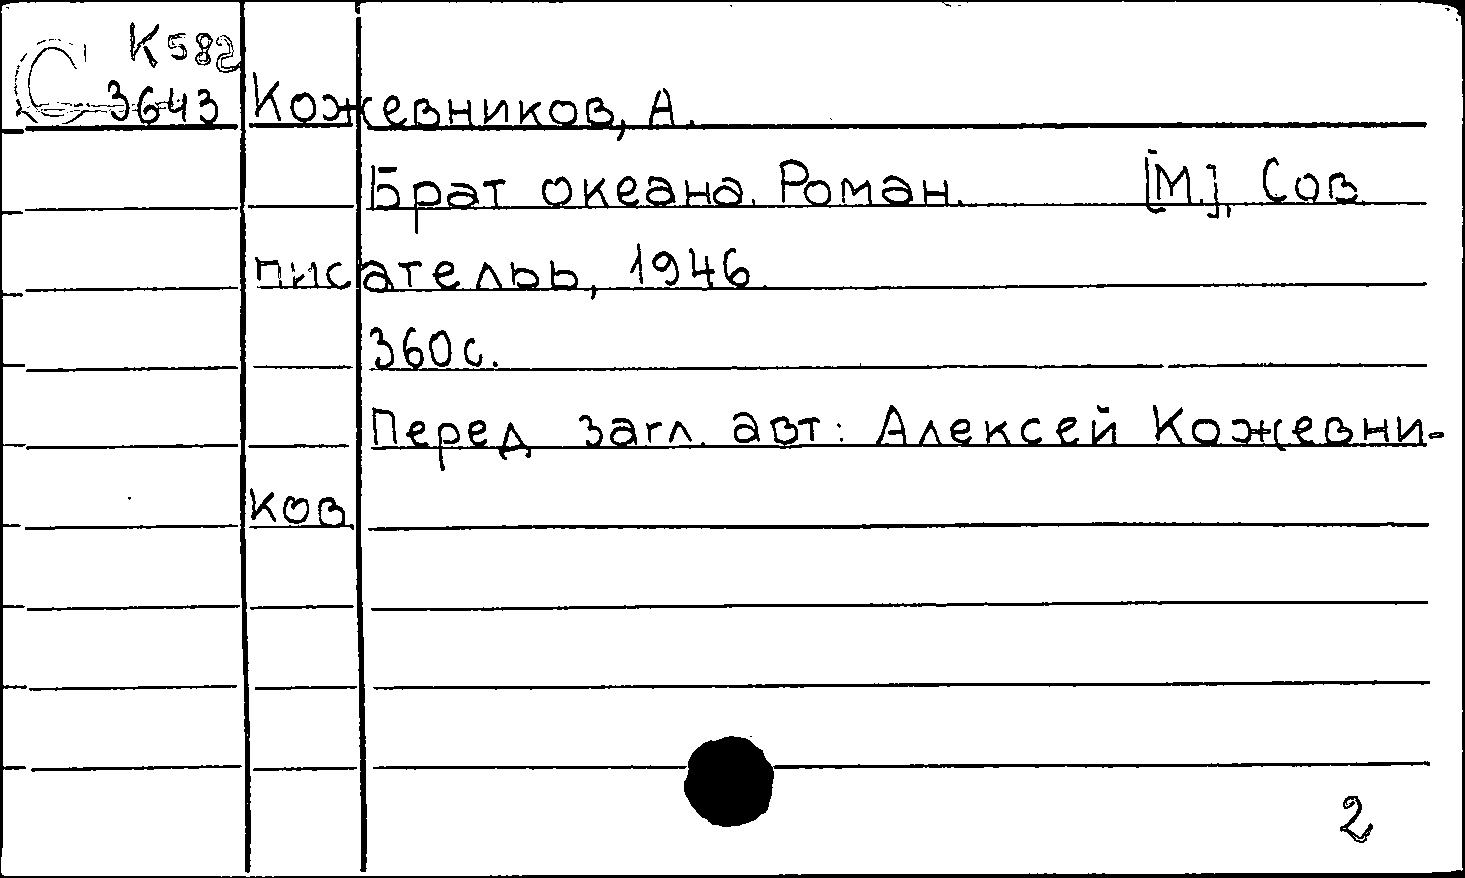 К582
С
3643 Кожевников, А.
Брат океана. Роман. [М.], Сов.
писательь, 1946.
360 с.
Перед загл. авт.: Алексей Кожевни-
ков
2